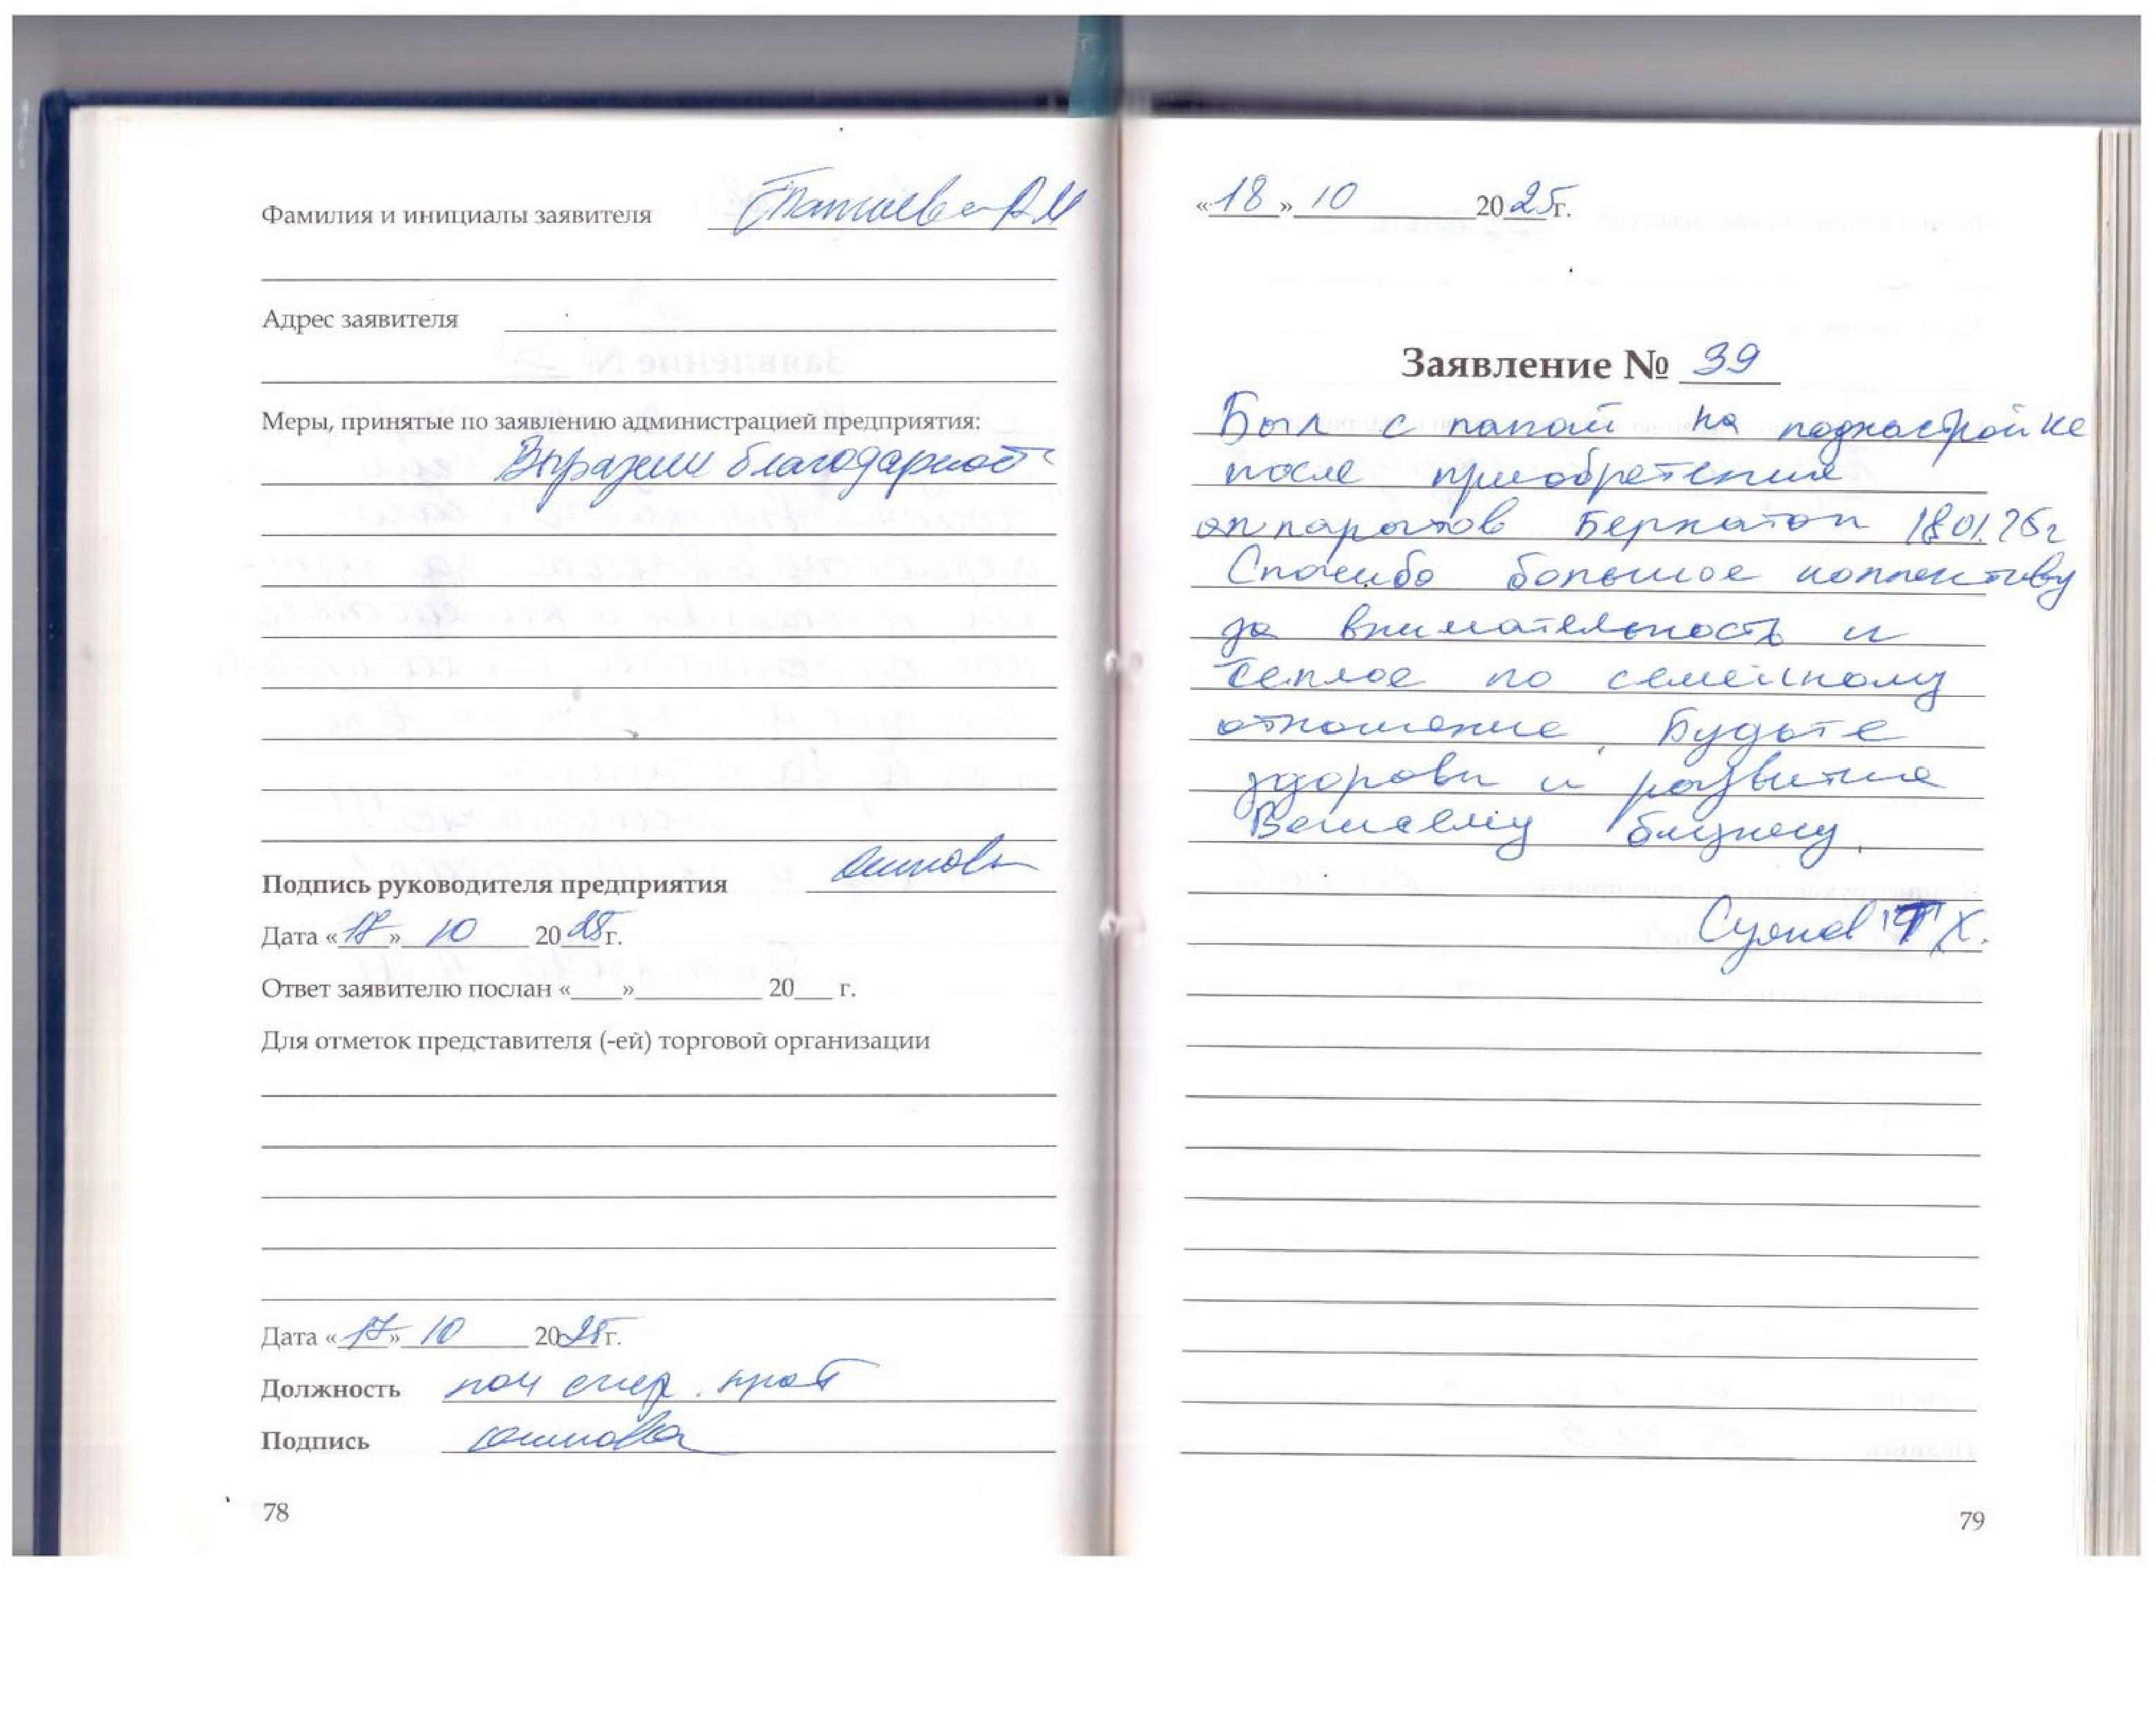 Фамилия и инициалы заявителя
Адрес заявителя
Меры, принятые по заявлению администрацией предприятия:
Выразили благодарность
Подпись руководителя предприятия
Дата «17» 10 2025г.
Ответ заявителю послан «___»__________ 20___ г.
Для отметок представителя (-ей) торговой организации
Дата «17» 10 2025г.
Должность
Подпись
78
«18» 10 2025г.
Заявление № 39
Был с папой на поднастройке
после приобретения
аппаратов Бернатон 18.01.25г
Спасибо большое коллективу
за внимательность и
теплое по семейному
отношение, Будьте
здоровы и развития
Вашему бизнесу.
Х.
79